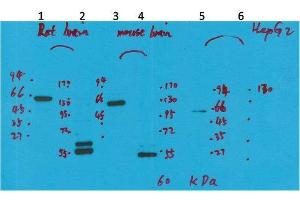 1 2 3 4 5 6
Rat brain mouse brain HepG2
94 66 45 35 27
170 130 95 72 55
94 66 45
170 130 95 72 55
94 66 45 35 27
130
60 kDa